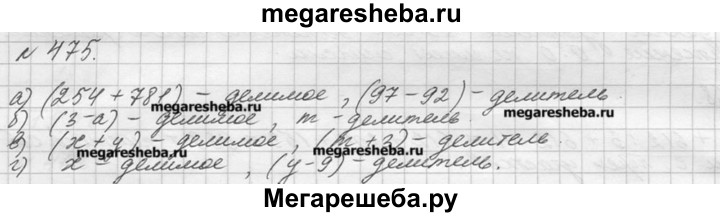 megaresheba.ru
N 475.
а) (254 + 781) - делимое, (97 - 92) - делитель.
megaresheba.ru megaresheba.ru
б) (3 - a) - делимое, m - делитель.
в) (x + y) - делимое, ( + 3) - делитель.
megaresheba.ru megaresheba.ru
г) x - делимое, (y - 9) - делитель.
Мегарешеба.ру